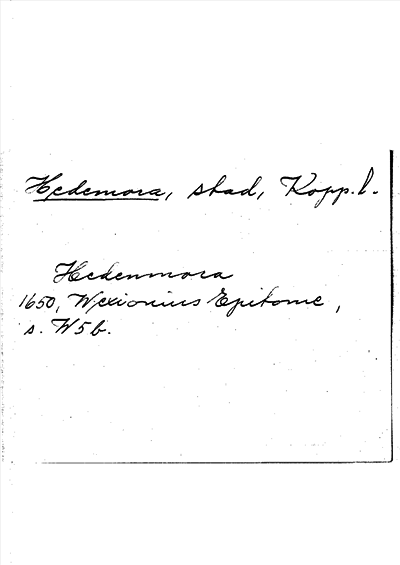 Hedemora, stad, Kopp.l.
Hedenmora
1650, Wexionius Epitome,
s. W5b.